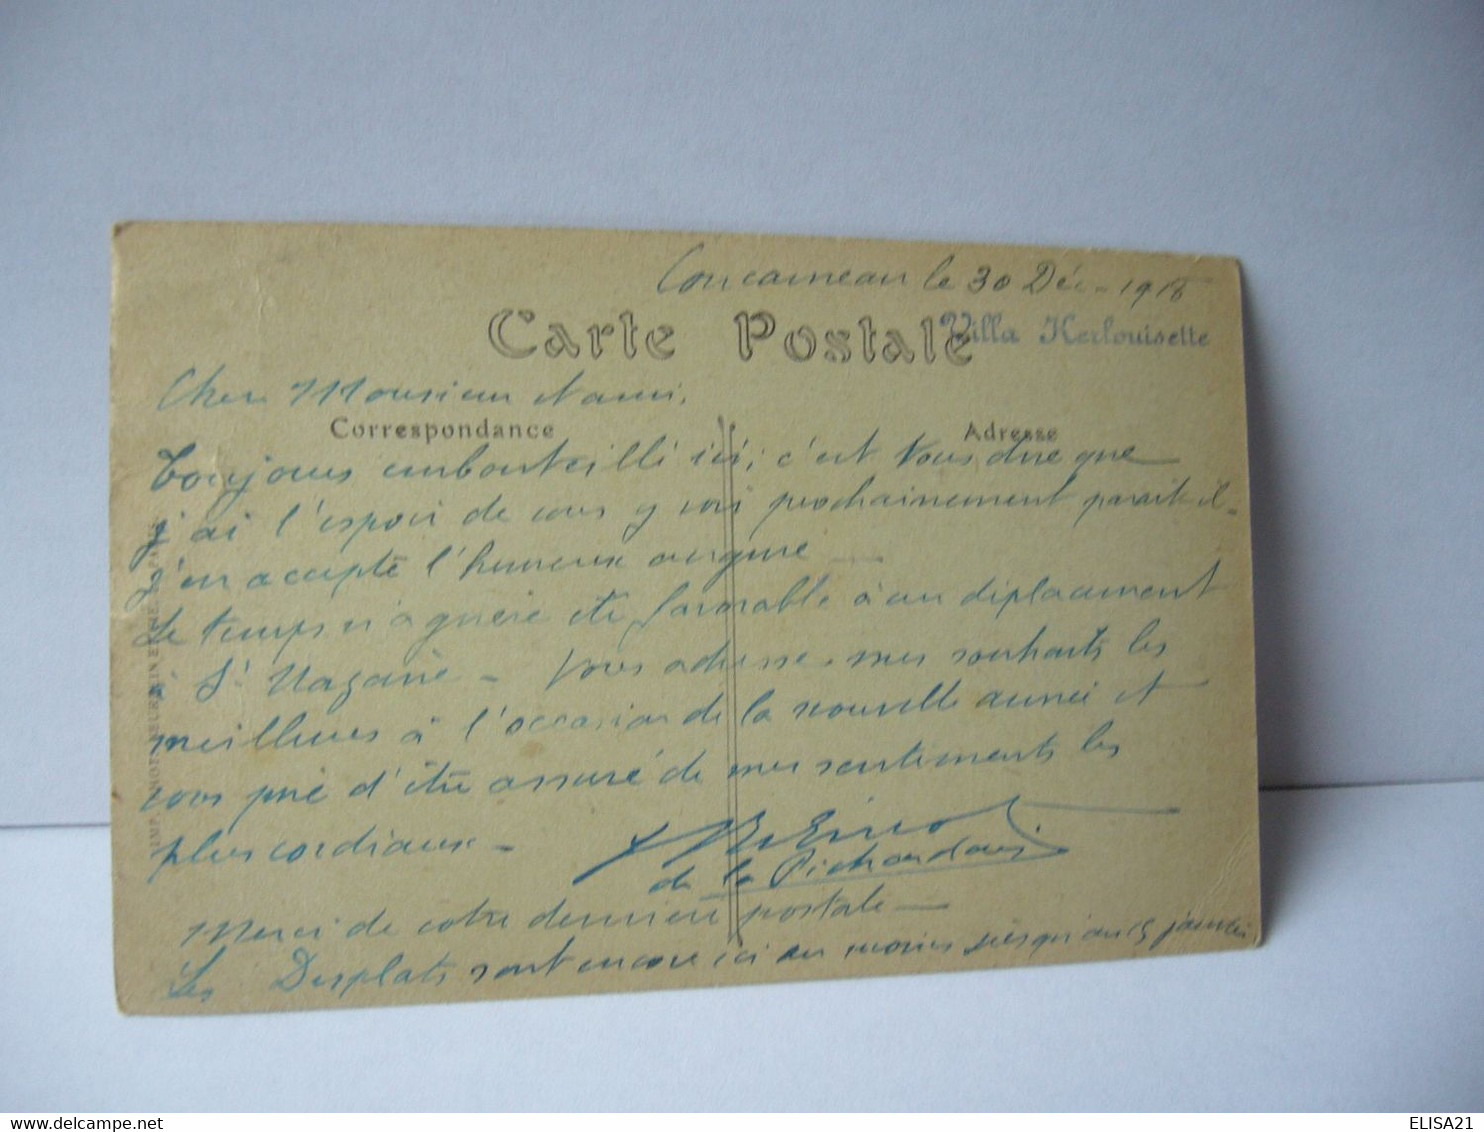 Concarneau le 30 Déc - 1918
Carte Postale
Villa Kerlouisette
Cher Monsieur et ami,
Correspondance
Adresse
Toujours embouteillé ici, c'est vous dire que
j'ai l'espoir de vous y voir prochainement parait-il -
j'en accepte l'heureux augure
Le temps n'a guère été favorable à un déplacement
à St Nazaire - Vous adresse mes souhaits les
meilleurs à l'occasion de la nouvelle année et
vous prie d'être assuré de mes sentiments les
plus cordiaux -
de la
Merci de votre dernière postale -
Les Desplats sont encore ici au moins jusqu'au 15 janvier
ELISA21